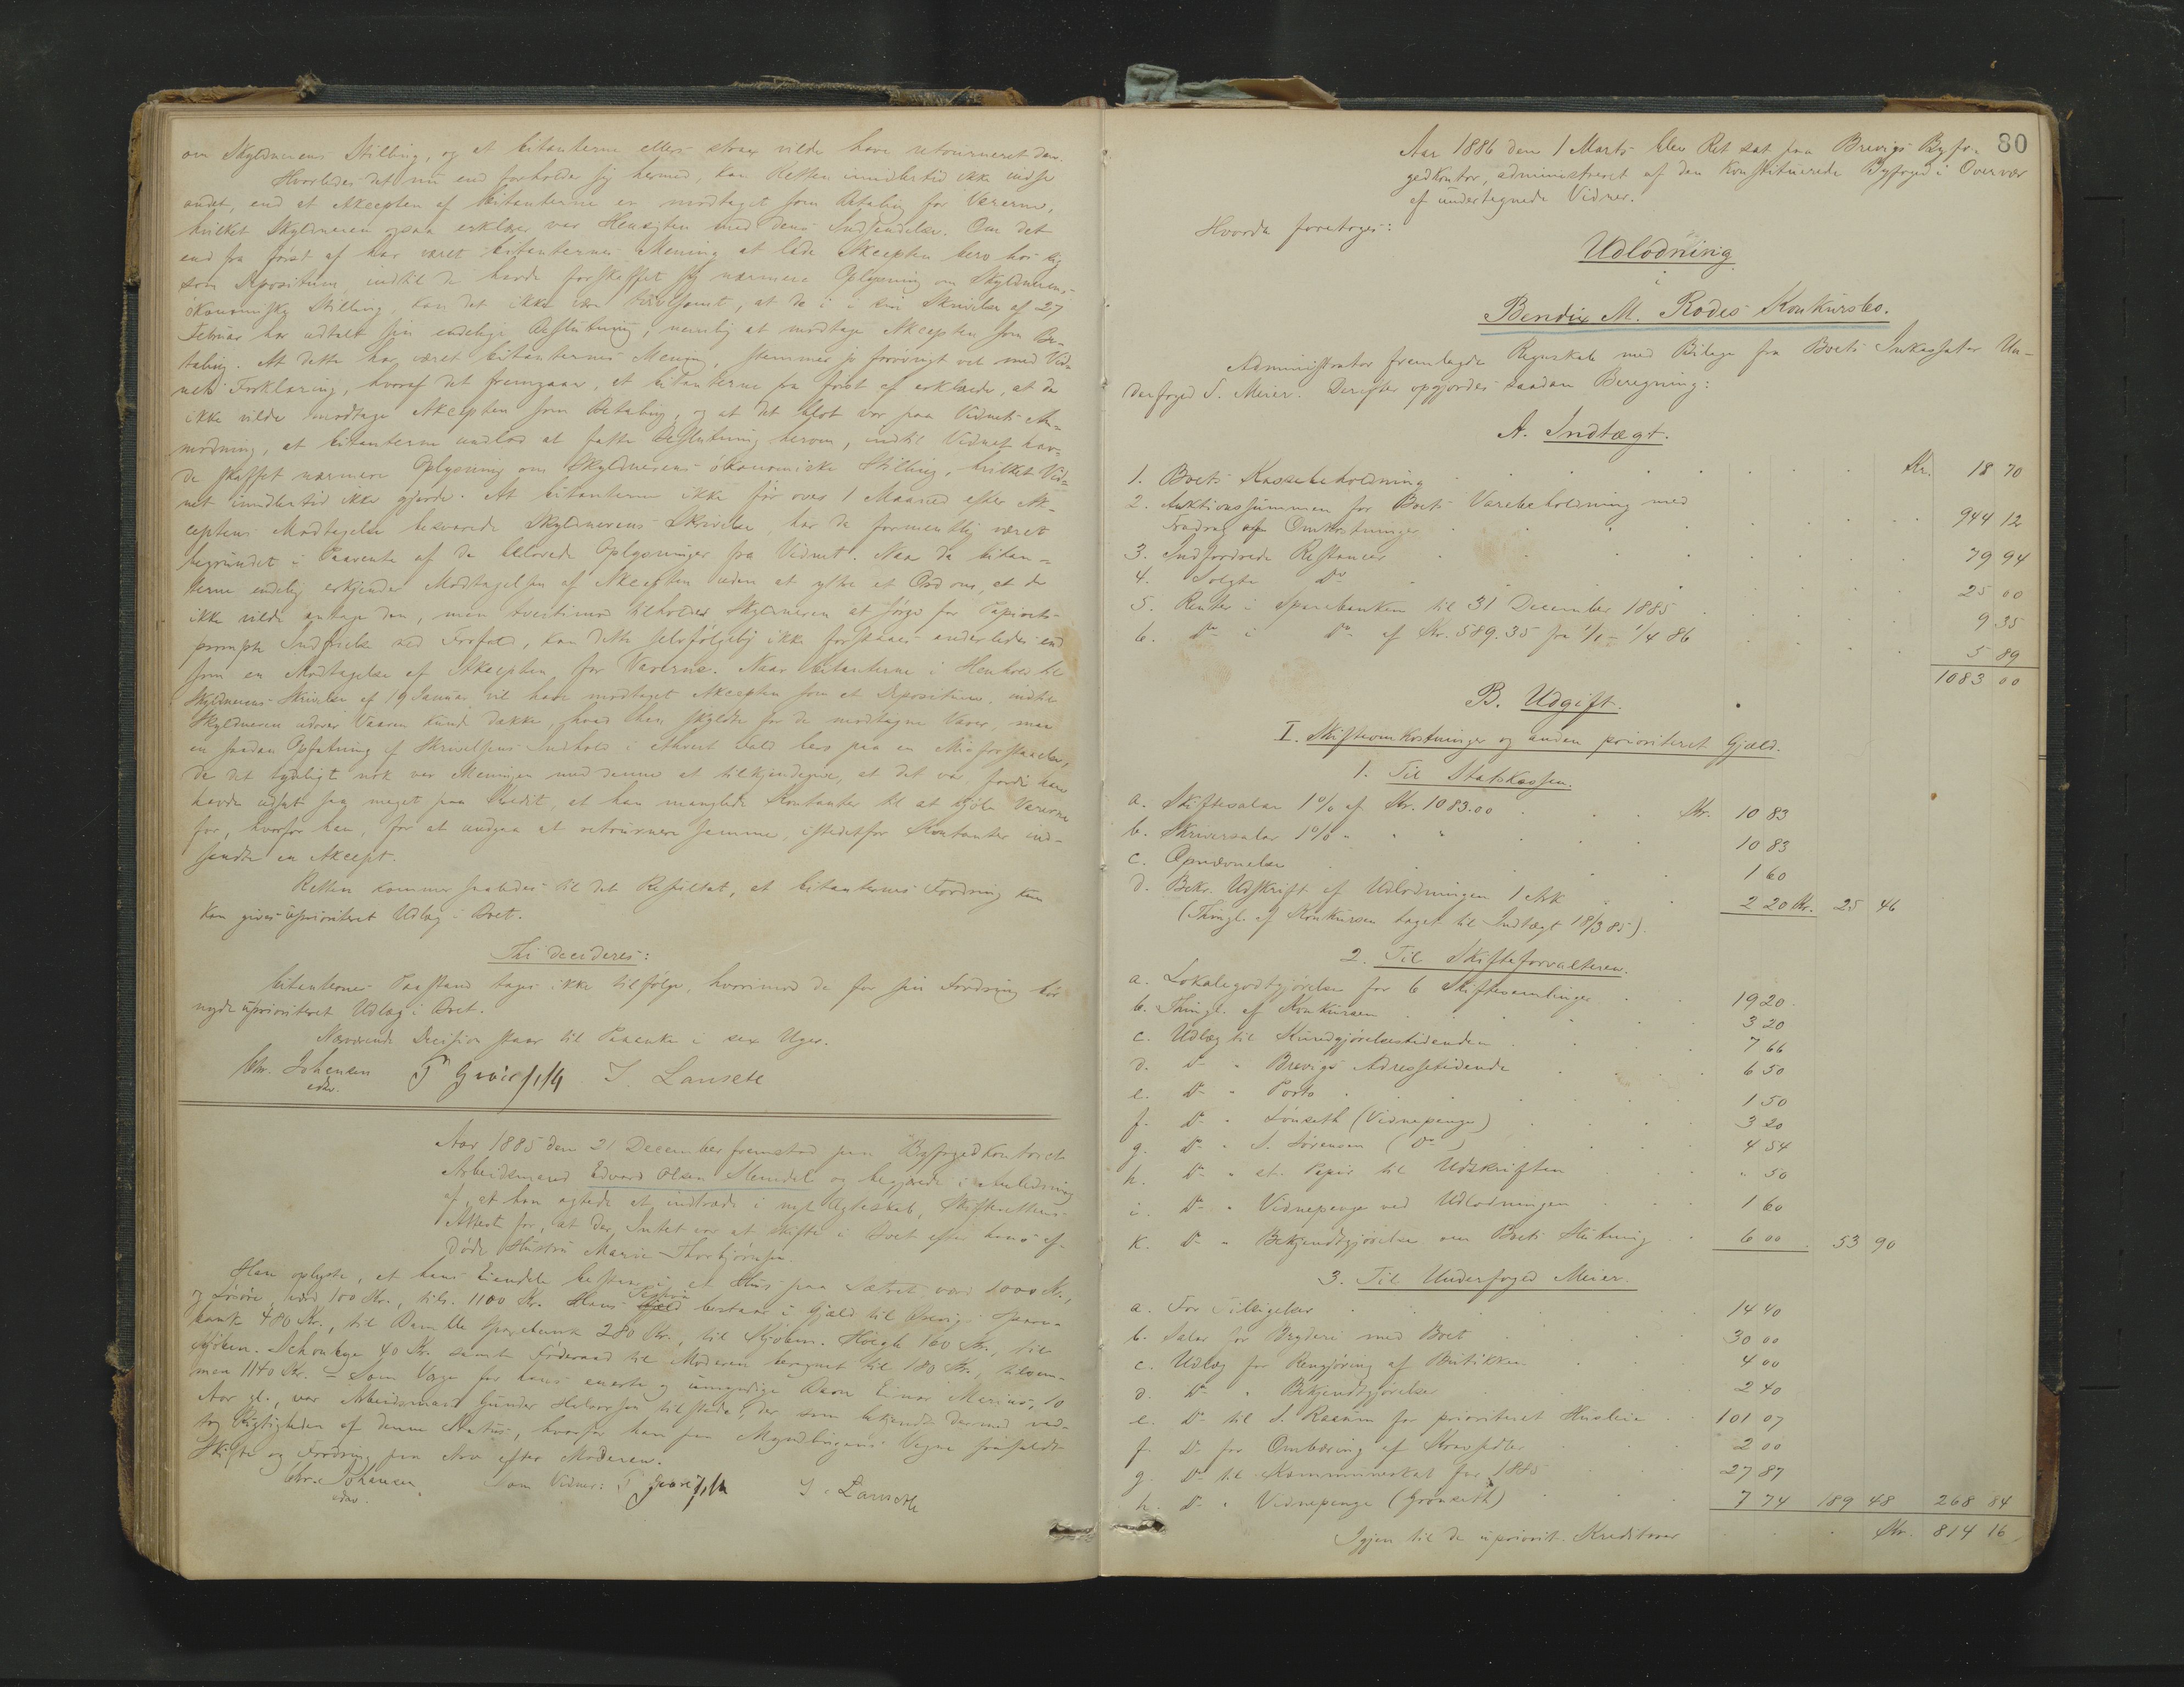 om Skyldnerens Stilling, og at Citanterne ellers strax vilde have retourneret den.
Hvorledes det nu end forholder sig hermed, kan Retten imidlertid ikke indse
andet, end at Akcepten af Citanterne er modtaget som Betaling for Varerne,
hvilket Skyldneren ogsaa erklærer var Hensigten med dens Indsendelse. Om det
end fra først af har været Citanternes Mening at lade Akcepten bero hos sig
som Depositum, indtil de havde forskaffet sig nærmere Oplysning om Skyldnerens
økonomiske Stilling, kan det ikke være tvivlsomt, at de i sin Skrivelse af 27
Februar har udtalt sin endelige Beslutning, nemlig at modtage Akcepten som Be-
taling. At dette har været Citanternes Mening, stemmer jo forøvrigt vel med Vid-
nets Forklaring, hvoraf det fremgaar, at Citanterne fra først af erklærede, at de
ikke vilde modtage Akcepten som Betaling, og at det blot var paa Vidnets An-
modning, at Citanterne undlod at fatte Beslutning herom, indtil Vidnet hav-
de skaffet nærmere Oplysning om Skyldnerens økonomiske Stilling, hvilket Vid-
net imidlertid ikke gjorde. At Citanterne ikke før over 1 Maaned efter Ak-
ceptens Modtagelse besvarede Skyldnerens Skrivelse, har da formentlig været
begrundet i Paavente af de belovede Oplysninger fra Vidnet. Naar da Citan-
terne endelig erkjender Modtagelsen af Akcepten uden at ytre et Ord om, at de
ikke vilde antage den, men tvertimod tilholder Skyldneren at sørge for Papirets
prompte Indfrielse ved Forfald, kan dette selvfølgelig ikke forstaaes anderledes end
som en Modtagelse af Akcepten for Varerne. Naar Citanterne i Henhold til
Skyldnerens Skrivelse af 19 Januar vil have modtaget Akcepten som et Depositum, indtil
Skyldneren udover Vaaren kunde dække, hvad han skyldte for de modtagne Varer, maa
en saadan Opfatning af Skrivelsens Indhold i ethvert Fald bero paa en Misforstaaelse,
da det tydeligt nok var Meningen med denne at tilkjendegive, at det var fordi han
havde udsat saa meget paa Kredit, at han manglede Kontanter til at kjøbe Varerne
for, hvorfor han, for at undgaa at retournere samme, istedetfor Kontanter ind-
sendte en Akcept.
Retten kommer saaledes til det Resultat, at Citanternes Fordring kun
kan gives uprioriteret Udlæg i Boet.
Thi decideres:
Citanternes Paastand tages ikke tilfølge, hvorimod de for sin Fordring bør
nyde uprioriteret Udlæg i Boet.
Nærværende Decision staar til Paaanke i sex Uger.
Chr. Johensen
edsv.
J. Lanseth
Aar 1885 den 21 December fremstod paa Byfogedkontoret
Arbeidsmand Edvard Olsen Stenedal og begjærede i Anledning
af, at han agtede at indtræde i nyt Ægteskab, Skifterettens
Attest for, at der Intet var at skifte i Boet efter hans af-
døde Hustru Maren Thorbjørnsen.
Han oplyste, at hans Eiendele bestaar i et Hus paa Sætret, værd 1000 Kr.,
og Løsøre, værd 100 Kr., tils. 1100 Kr. Hans Passiva bestaar i Gjæld til Brevigs Spare-
bank 480 Kr., til Bamble Sparebank 280 Kr., til Kjøbm. Høegh 160 Kr., til
Kjøbm. Schonhge 40 Kr. samt Føderaad til Moderen beregnet til 180 Kr., tilsam-
men 1140 Kr. - Som Værge for hans eneste og umyndige Barn Einar Marius, 10
Aar gl., var Arbeidsmand Gunder Halvorsen tilstede, der som bekjendt dermed ved-
tog Rigtigheden af denne Status, hvorfor han paa Myndlingens Vegne frafaldt
Skifte og Fordring paa Arv efter Moderen.
Chr. Johensen
edsv.
Som Vidner:
J. Lanseth
80
Aar 1886 den 1 Marts blev Ret sat paa Brevigs Byfo-
gedkontor, administreret af den konstituerede Byfoged i Overvær
af undertegnede Vidner.
Hvorda foretoges:
Udlodning
i
Bendix M. Rodes Konkursbo.
Administrator fremlagde Regnskab med Bilage fra Boets Inkassator Un-
derfoged S. Meier. Derefter opgjordes saadan Beregning:
A. Indtægt.
1. Boets Kassebeholdning Kr. 18 70
2. Auktionssummen for Boets Varebeholdning med
Fradrag af Omkostninger 944 12
3. Indfordrede Restancer 79 94
4. Solgte Do 25 00
5. Renter i Sparebanken til 31 December 1885 9 35
6. Do i Do af Kr. 589.35 fra 1/1 - 1/4 86 5 89
1083 00
B. Udgift.
I. Skifteomkostninger og anden prioriteret Gjæld.
1. Til Statskassen.
a. Skiftesalær 1% af Kr. 1083.00 Kr. 10 83
b. Skriversalær 1% " " 10 83
c. Opnævnelse 1 60
d. Bekr. Udskrift af Udlodningen 1 Ark 2 20 Kr. 25 46
(Thingl. af Konkursen taget til Indtægt 18/3 85).
2. Til Skifteforvalteren.
a. Lokalegodtgjørelse for 6 Skiftesamlinger 19 20
b. Thingl. af Konkursen 3 20
c. Udlæg til Kundgjørelsestidenden 7 66
d. Do " Brevigs Adressetidende 6 50
e. Do " Porto 1 50
f. Do " Lønseth (Vidnepenge) 3 20
g. Do " S. Sørensen (Do) 4 54
h. Do " st. Papir til Udskriften " 50
i. Do " Vidnepenge ved Udlodningen 1 60
k. Do " Bekjendtgjørelse om Boets Slutning 6 00 53 90
3. Til Underfoged Meier.
a. For Tilsigelser 14 40
b. Salær for Bryderi med Boet 30 00
c. Udlæg for Rengjøring af Butikken 4 00
d. Do " Bekjendtgjørelser 2 40
e. Do til S. Raanum for prioriteret Husleie 101 07
f. Do for Ombæring af Kravsedler 2 00
g. Do til Kommuneskat for 1885 27 87
h. Do " Vidnepenge (Grønseth) 7 74 189 48 268 84
Igjen til de upriorit. Kreditorer Kr. 814 16